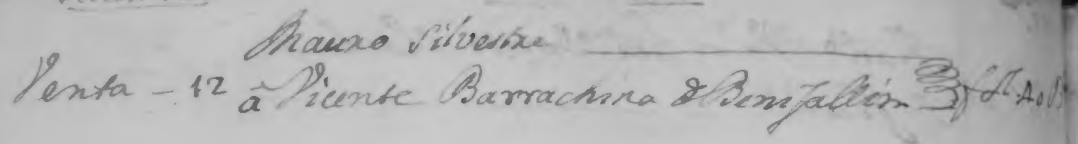 Mauro Silvestre
Venta - 12 à Vicente Barrachina d Benifallim